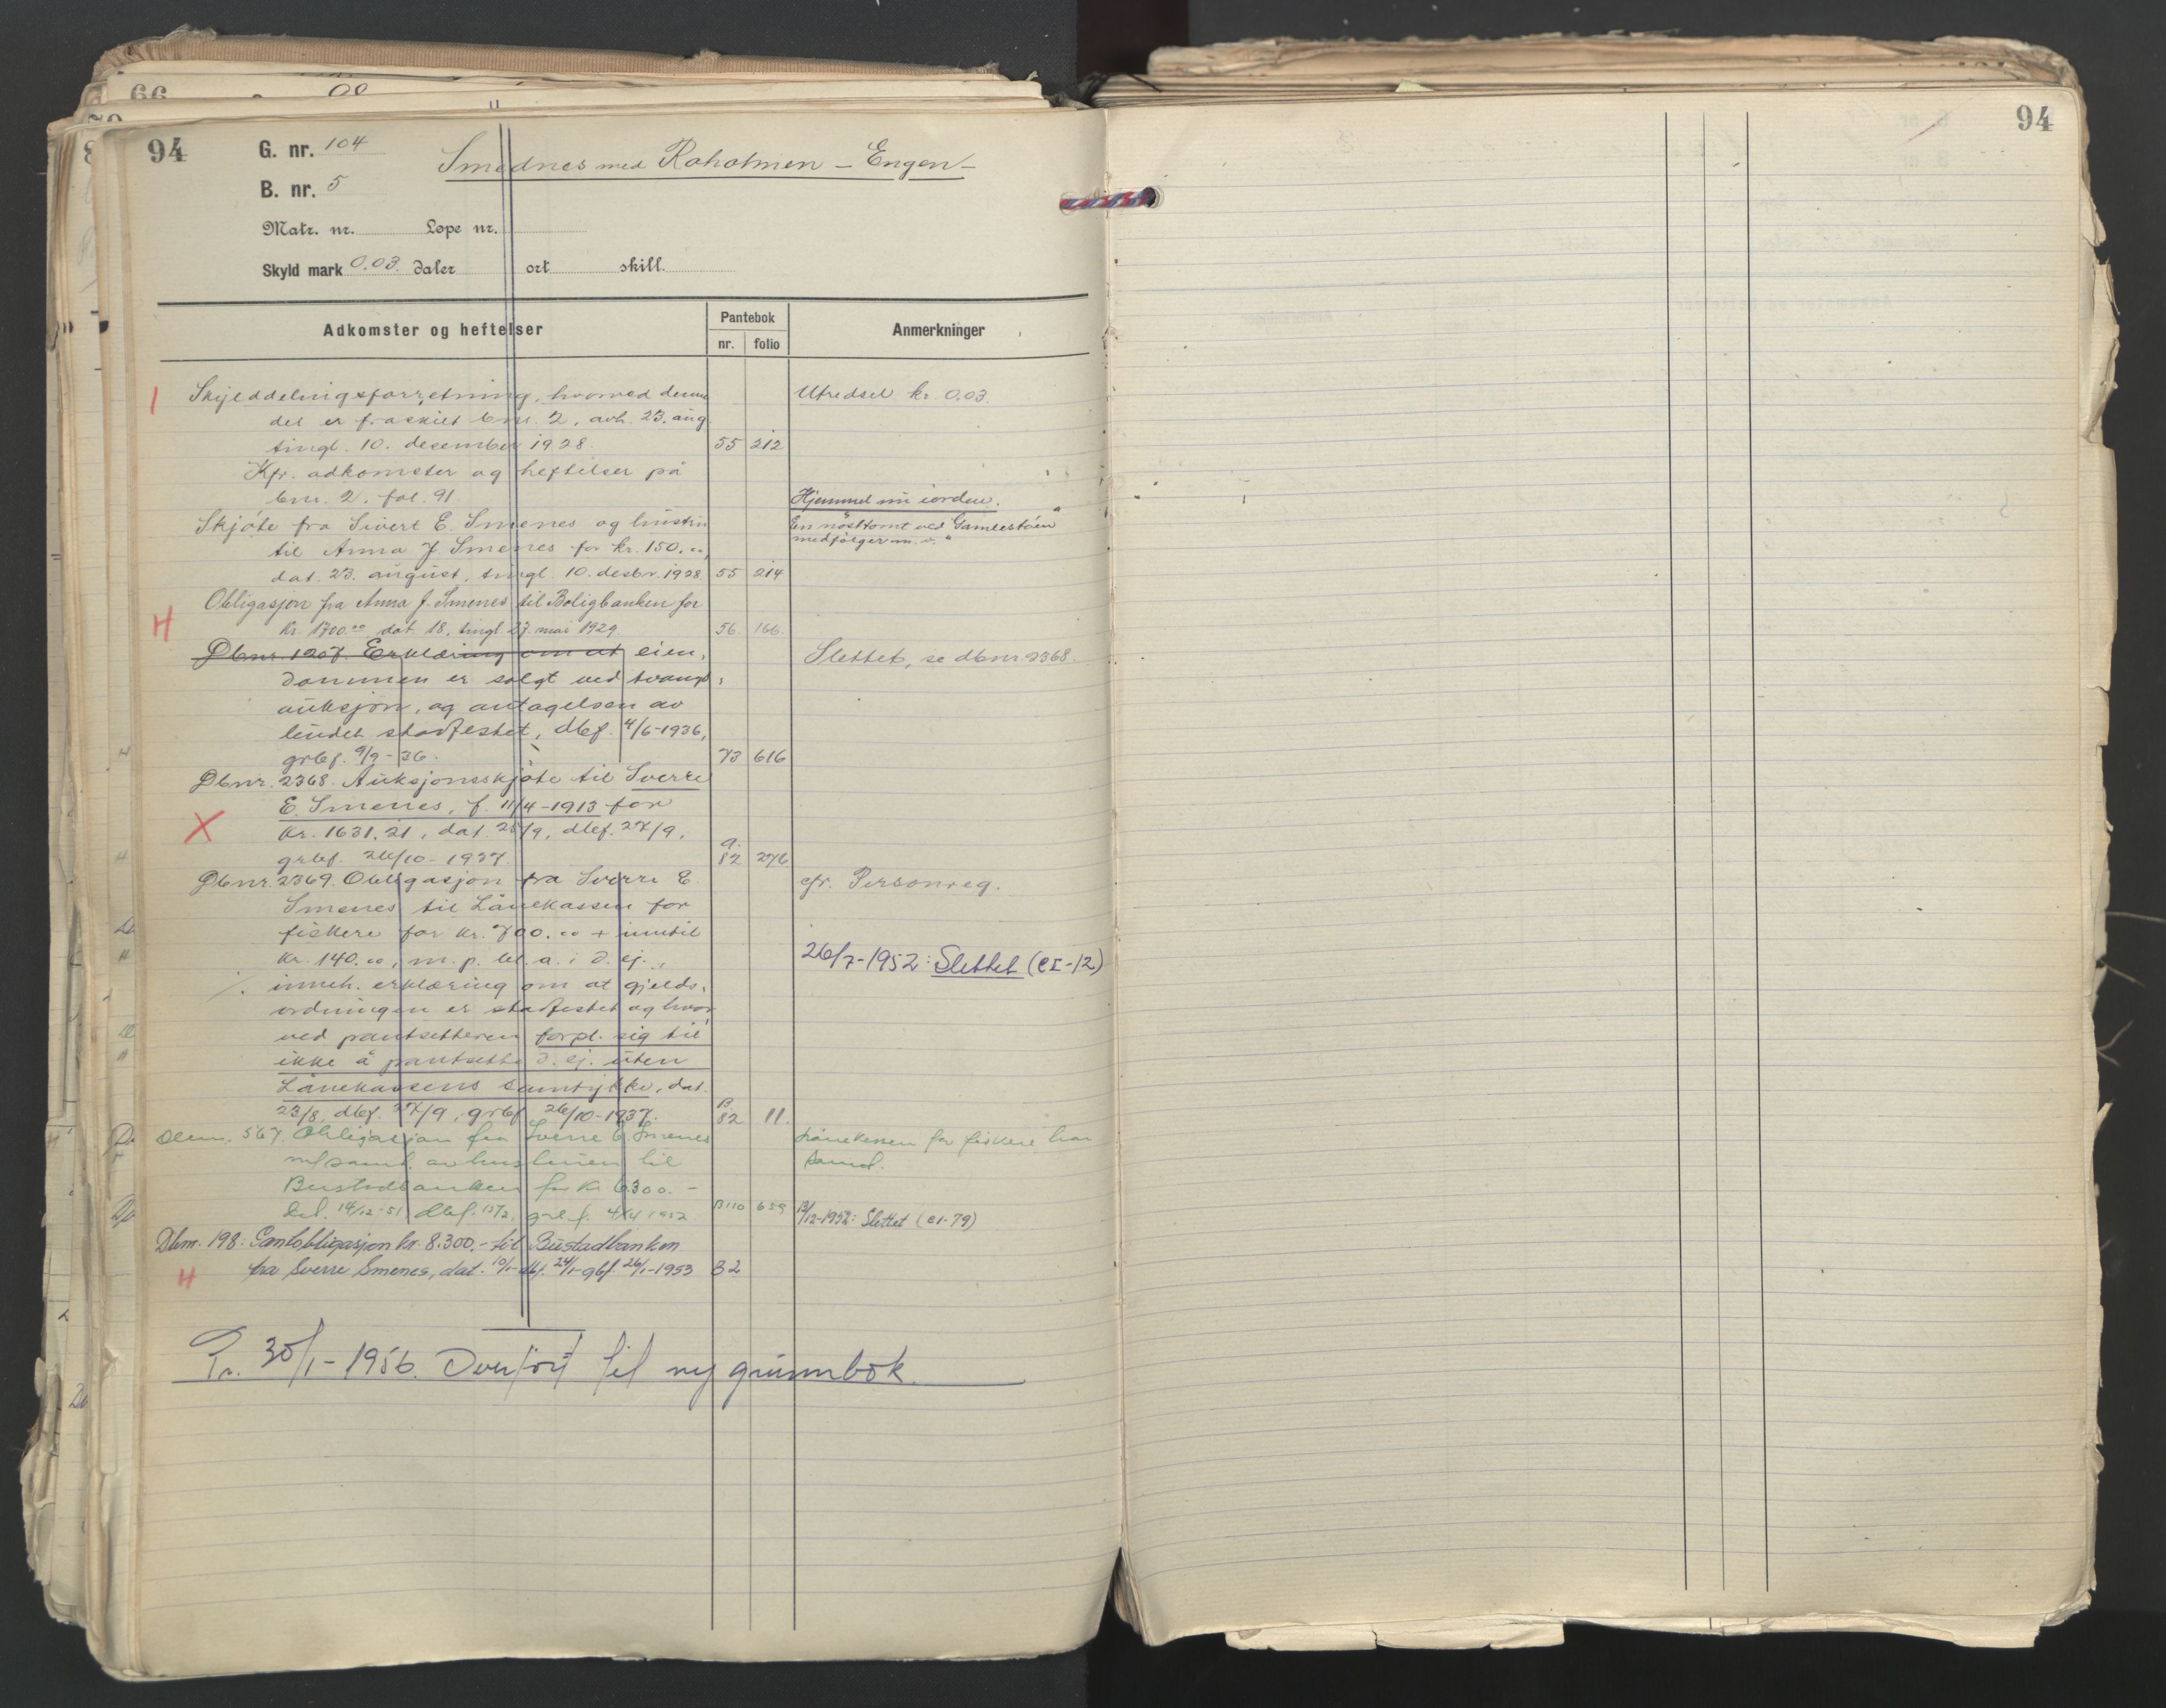 66
94
G. nr. 104
Smednes med Roholmen – Engen –
B. nr. 5
Matr. nr. Løpe nr.
Skyld mark 0.03. daler ort skill.
Adkomster og heftelser
Pantebok
nr. folio
Anmerkninger
I Skylddelingsforretning, hvorved denne Utredsel kr. 0.03.
del er fraskilt bnr. 2, avh. 23. aug.
tingl. 10. desember 1928. 55 212
Kfr. adkomster og heftelser på
bnr. 2. fol. 91 Hjemmel nu iorden.
Skjøte fra Sivert E. Smenes og hustru En nösttomt ved "Gamlestöen"
til Anna J. Smenes for kr. 150.00, medfølger m. v.
dat. 23. august, tingl. 10. desbr. 1928. 55 214
Obligasjon fra Anna J. Smenes til Boligbanken for
H kr. 1700.00 dat. 18, tingl. 27. mai 1929. 56. 166.
Dbnr. 1207. Erklæring om at eien, Slettet, se dbnr. 2368.
dommen er solgt ved tvangs,
auksjon, og antagelsen av
budet stadfestet, dbf. 4/6-1936,
grbf. 9/9-36. 73 616
Dbnr. 2368. Auksjonsskjøte til Sverre
E. Smenes, f. 11/4-1913 for
X kr. 1631.21, dat. 25/9, dbf. 27/9,
grbf. 26/10-1937. a. 82 276
Dbnr. 2369. Obligasjon fra Sverre E. cfr. Personreg.
Smenes til Lånekassen for
fiskere for kr. 700.00 + inntil
kr. 140.00, m. p. bl. a. i d. ej., 26/7-1952: Slettet (CI-12)
inneh. erklæring om at gjelds,
ordningen er stadfestet og hvor,
ved pantsetteren forpl. sig til
ikke å pantsette d. ej. uten
Lånekassens samtykke, dat.
23/8, dbf. 27/9, grbf. 26/10-1937. B. 82 11.
Dbnr. 567. Obligasjon fra Sverre E. Smenes Lånekassen for fiskere har
m/samt. av hustruen til samt.
Bustadbanken for kr. 6300.–
dat. 14/12-51, dbf. grbf. 4/4 1952 B110 659 12/12-1952: Slettet (CI-79)
Dbnr. 198: Pantobligasjon kr. 8.300.- til Bustadbanken
H fra Sverre Smenes, dat. 10/1-dbf. 24/1-gbf. 26/1-1953 B2
30/1-1956. Overført til ny grunnbok.
94